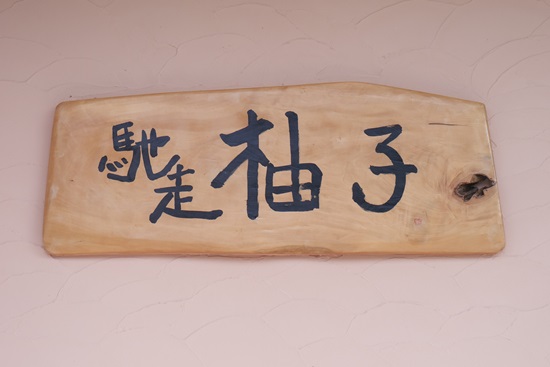 馳走 柚子